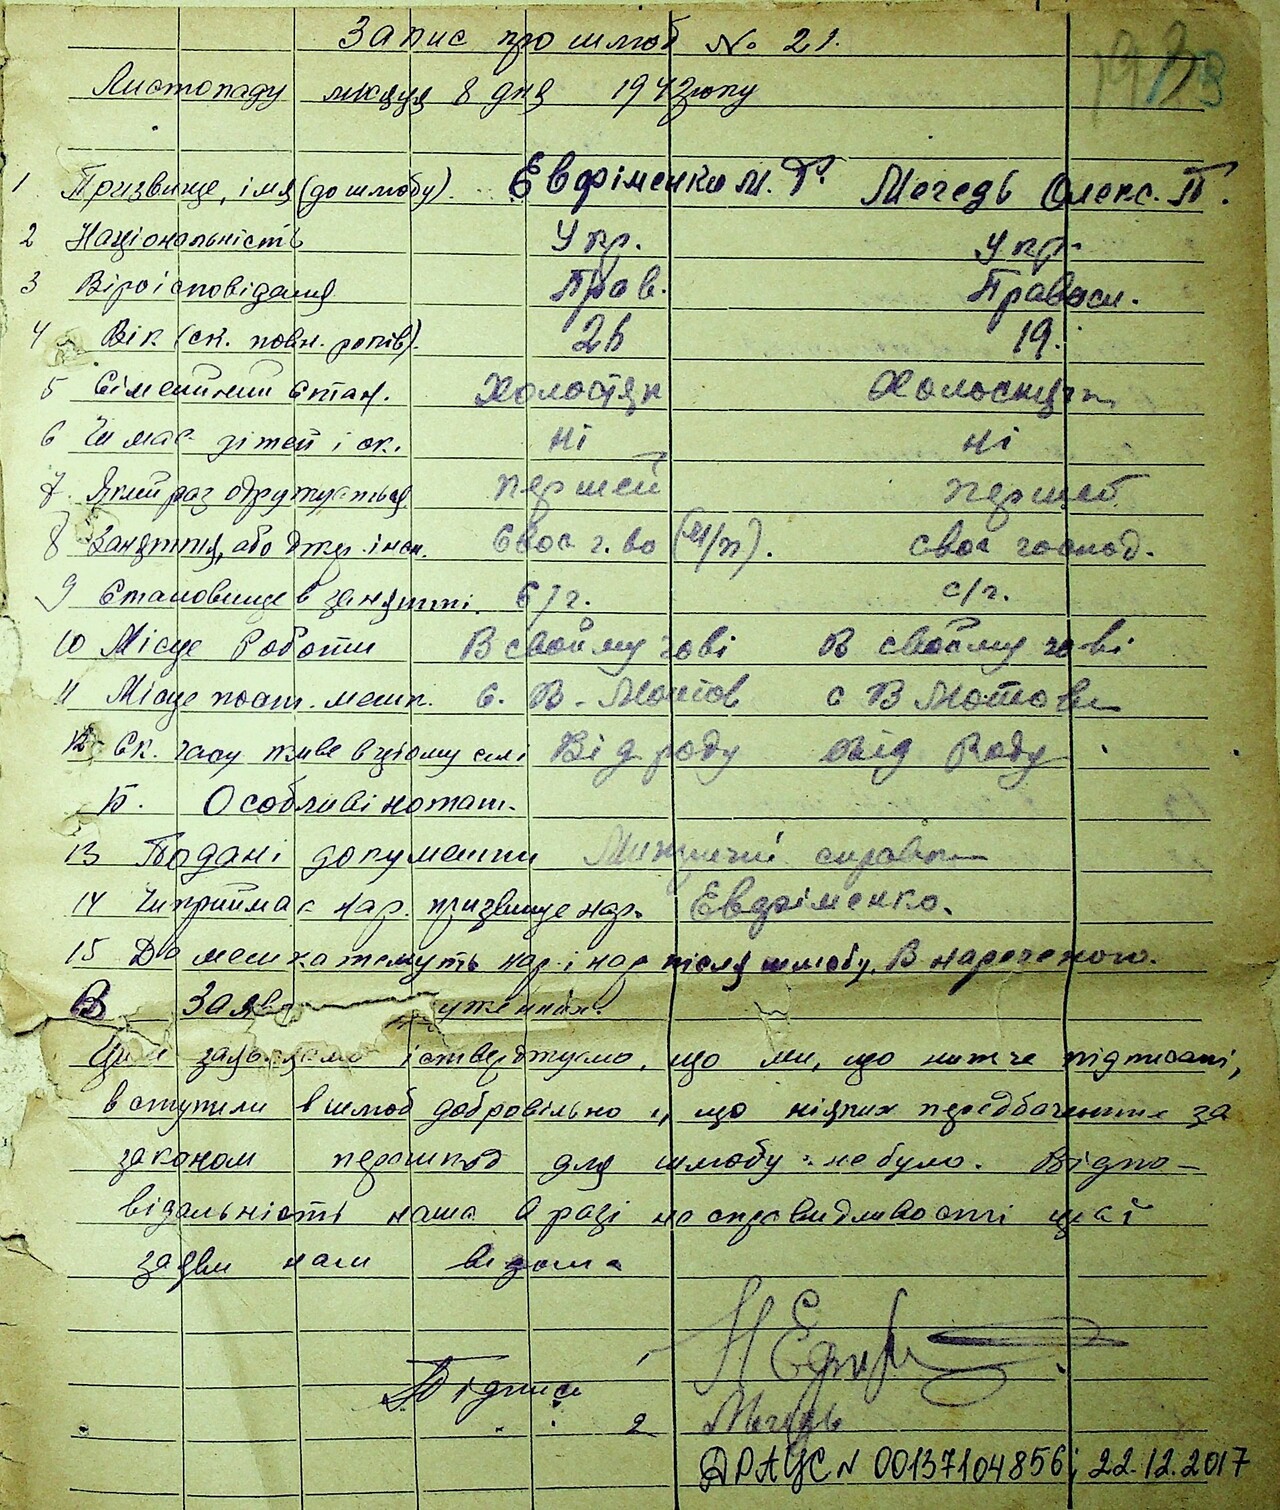 Запис про шлюб No 21.
Листопаду місяця 8 дня 1942 року
1 Призвище, імя (до шлюбу). Евфіменко М. Г. Мегедь Олекс. П.
2 Національність Укр. Укр.
3 Віроісповідання Прав. Правосл.
4 Вік (ск. повн. років). 26 19.
5 Сімейний Стан. Холостяк
6 Чи має дітей і ск. ні ні
7 Який раз одружується першей першей
8 Заняття, або джер. існ. Своє г. во своє господ.
9 Становище в занятті. с/г. с/г.
10 Місце Роботи В своїму гові В своїму гові
11 Місце пост. мешк. с. В.
12 Ск. часу живе в цьому селі Від роду Від Роду
Б. Особливі нотат.
13 Подані документи справки
14 Чи приймає нар. призвище нар. Евфіменко.
15 Де мешкатемуть нар. і нар після шлюбу. В нареченого.
В Заява
Цим заявляємо і стверджуємо, що ми, що нижче підписані,
вступили в шлюб добровільно и, що ніяких передбачених за
законом перешкод для шлюбу не було. Відпо-
відальність наша в разі несправидливості цієї
заяви нам відома
Підписи 1
2 Мегедь
ДРАЦС N 00137104856; 22.12.2017